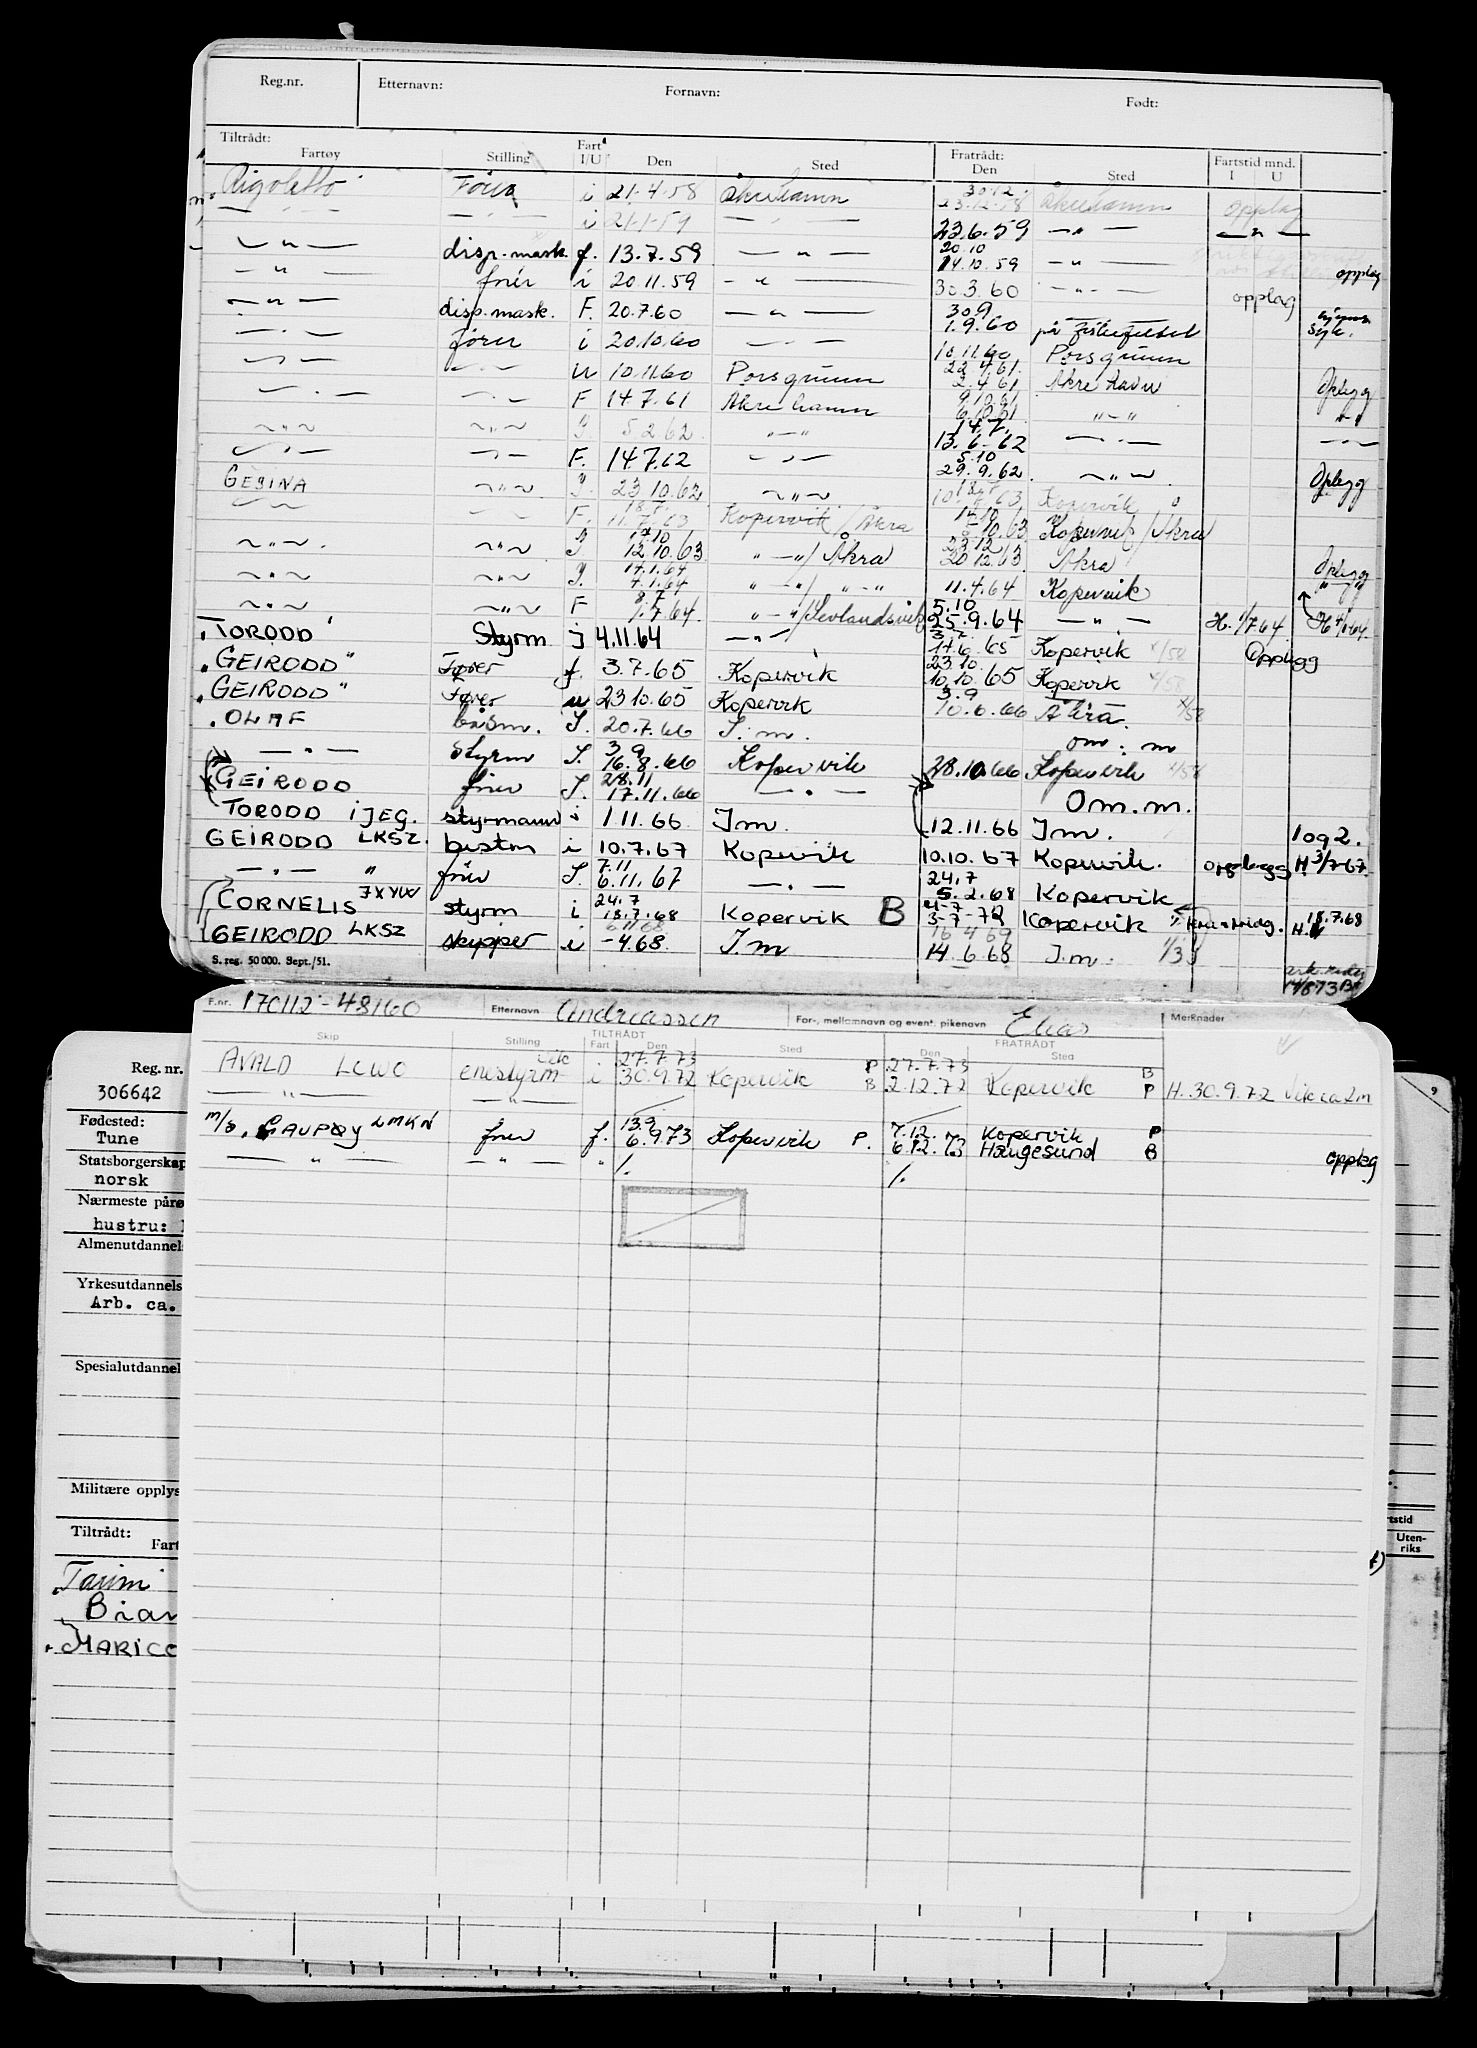 Reg.nr. Etternavn: Fornavn: Født:
Tiltrådt: Fratrådt:
Fartøy Stilling Fart I/U Den Sted Den Sted Fartstid mnd. I U
Rigoletto Fører i 21.4.58 Åkrehamn 30.12. 23.12.58 Åkrehamn opplag
— " — — " — i 21-1-59 — " — 23.6.59 — " — — " —
— " — disp. mask. f. 13.7.59 — " — 20.10 14.10.59 — " — opplag
— " — fører i 20.11.59 — " — 30.3.60 — " — opplag
— " — disp. mask. F. 20.7.60 — " — 30.9 1.9.60 på fiskefeltet syk.
— " — fører i 20.10.60 — " — 10.11.60 Porsgrunn
— " — — " — u 10.11.60 Porsgrunn 22.4.61. 2.4.61 Åkrehavn Oplegg
— " — — " — F 14.7.61 Åkrehamn 9.10.61 6.10.61 " — " " "
— " — — " — I. 5.2.62. " — " 14.7. 13.6-62 — " — — " —
— " — — " — F. 14.7.62 — " — 5.10 29.9.62. — " — Oplegg
GESINA — " — I. 23.10.62 — " — 18.7 10.7.63. Kopervik
— " — — " — F. 18.7. 11.7.63 Kopervik / Åkra 14.10 5-10.63 Kopervik / Åkra
— " — — " — I 14.10 12.10.63 " — " / Åkra 23.12 20.12.63 Åkra Oplegg
— " — — " — I. 14.1.64 4.1.64 " — " / " — " 11.4.64 Kopervik " — "
— " — — " — F 8.7 1.7.64 " — " / Sevlandsvik 5.10 25.9.64 — " — H. 1/7.64.
"TORODD" Styrm I 4.11.64 — " — 17.6.65 Kopervik x/58 Opplegg
"GEIRODD" Fører f. 3.7.65 Kopervik 23.10. 10.10.65 Kopervik x/58
"GEIRODD" Fører u 23.10.65 Kopervik 3.9 10.6.66 Åkra. x/58
"OLAF båsm. I. 20.7.66 I.m. om. m
— " — Styrm I. 3.9 16.8.66 Kopervik 28.10.66 Kopervik x/58
GEIRODD fører I. 28.11 17.11.66 — " — Om. m.
TORODD IJEG. styrmann i 1.11.66 I m. 12.11.66 I m. 1 og 2.
GEIRODD LKSZ. bestm i 10.7.67 Kopervik 10.10.67 Kopervik. opplegg H 3/7-67
— " — " fører I. 7.11 6.11.67 — " — 24.7 5.2.68 Kopervik
CORNELIS JXYW styrm i 24.7 18.7.68 Kopervik B 4-7 3-7-72 Kopervik H. 18.7.68
GEIRODD LKSZ skipper i -4.68 I.m 14.6.68 I.m.
S. reg. 50 000. Sept./51.
F.nr. 170112-48160 Etternavn Andreassen For-, mellomnavn og event. pikenavn Elias Merknader
TILTRÅDT FRATRÅDT
Skip Stilling Fart Den Sted Den Sted
AVALD LCWO enestyrm vik i 27.7.73 30.9.72 Kopervik P B 27.7.73 2.12.72 Kopervik B P H. 30.9.72 Vik ca 2m
— " — — " —
m/s. GAUPØY LMKN fører f. 13.9 6.9.73 Kopervik P. 7.12. Kopervik P
— " — — " — " /. 6.12.73 Haugesund B opplag
/.
Reg. nr.
306642
Fødested:
Tune
Statsborgerskap
norsk
Nærmeste pårø
hustru:
Almenutdannels
Yrkesutdannels
Arb. ca.
Spesialutdannel
Militære opplys
Tiltrådt:
Fart
rtstid
Uten-
riks
Taimi
Bian
MARICO